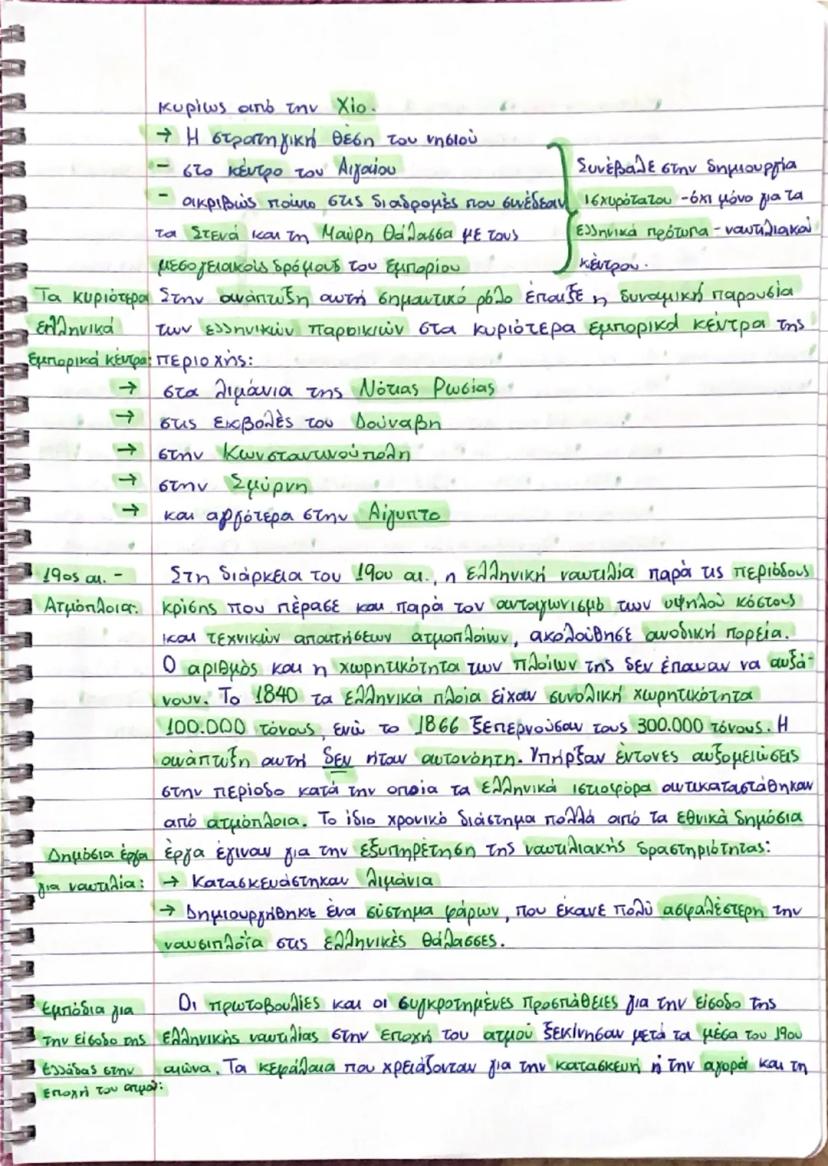 κυρίως από την Χίο.
→ Η στρατηγική θέση του νησιού
- στο κέντρο του Αιγαίου
- ακριβώς πάνω στις διαδρομές που συνέδεαν
τα Στενά και τη Μαύρη Θάλασσα με τους
μεσογειακούς δρόμους του εμπορίου
Συνέβαλε στην δημιουργία
ισχυρότατου - όχι μόνο για τα
ελληνικά πρότυπα - ναυτιλιακού
κέντρου.
Τα κυριότερα
ελληνικά
εμπορικά κέντρα:
Στην ανάπτυξη αυτή σημαντικό ρόλο έπαιξε η δυναμική παρουσία
των ελληνικών παροικιών στα κυριότερα εμπορικά κέντρα της
περιοχής:
→ στα λιμάνια της Νότιας Ρωσίας
→ στις εκβολές του Δούναβη
→ στην Κωνσταντινούπολη
→ στην Σμύρνη
→ και αργότερα στην Αίγυπτο
19ος αι. -
Ατμόπλοια:
Στη διάρκεια του 19ου αι., η ελληνική ναυτιλία παρά τις περιόδους
κρίσης που πέρασε και παρά τον ανταγωνισμό των υψηλού κόστους
και τεχνικών απαιτήσεων ατμοπλοίων, ακολούθησε ανοδική πορεία.
Ο αριθμός και η χωρητικότητα των πλοίων της δεν έπαυαν να αυξά-
νουν. Το 1840 τα ελληνικά πλοία είχαν συνολική χωρητικότητα
100.000 τόνους, ενώ το 1866 ξεπερνούσαν τους 300.000 τόνους. Η
ανάπτυξη αυτή δεν ήταν αυτονόητη. Υπήρξαν έντονες αυξομειώσεις
στην περίοδο κατά την οποία τα ελληνικά ιστιοφόρα αντικαταστάθηκαν
από ατμόπλοια. Το ίδιο χρονικό διάστημα πολλά από τα εθνικά δημόσια
έργα έγιναν για την εξυπηρέτηση της ναυτιλιακής δραστηριότητας:
Δημόσια έργα
για ναυτιλία:
→ Κατασκευάστηκαν λιμάνια
→ Δημιουργήθηκε ένα σύστημα φάρων, που έκανε πολύ ασφαλέστερη την
ναυσιπλοΐα στις ελληνικές θάλασσες.
Εμπόδια για
την είσοδο της
Ελλάδας στην
εποχή του ατμού:
Οι πρωτοβουλίες και οι συγκροτημένες προσπάθειες για την είσοδο της
ελληνικής ναυτιλίας στην εποχή του ατμού ξεκίνησαν μετά τα μέσα του 19ου
αιώνα. Τα κεφάλαια που χρειάζονταν για την κατασκευή ή την αγορά και τη